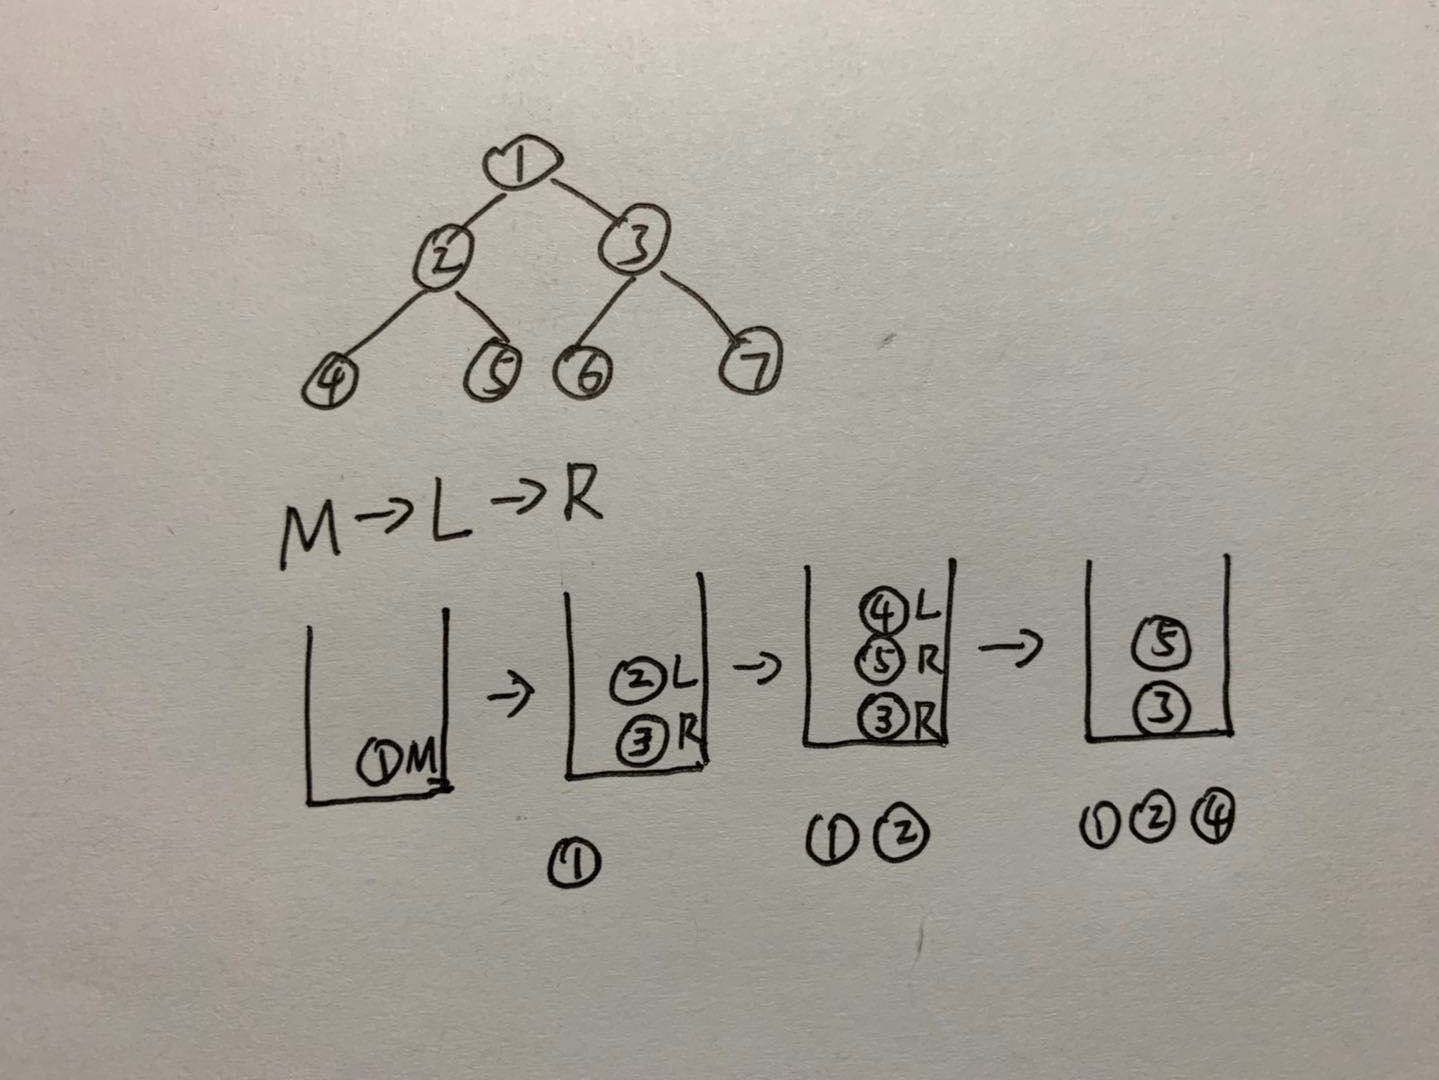 ①
② ③
④ ⑤ ⑥ ⑦
M → L → R
① M → ② L ③ R → ④ L ⑤ R ③ R → ⑤ ③
① ① ② ① ② ④